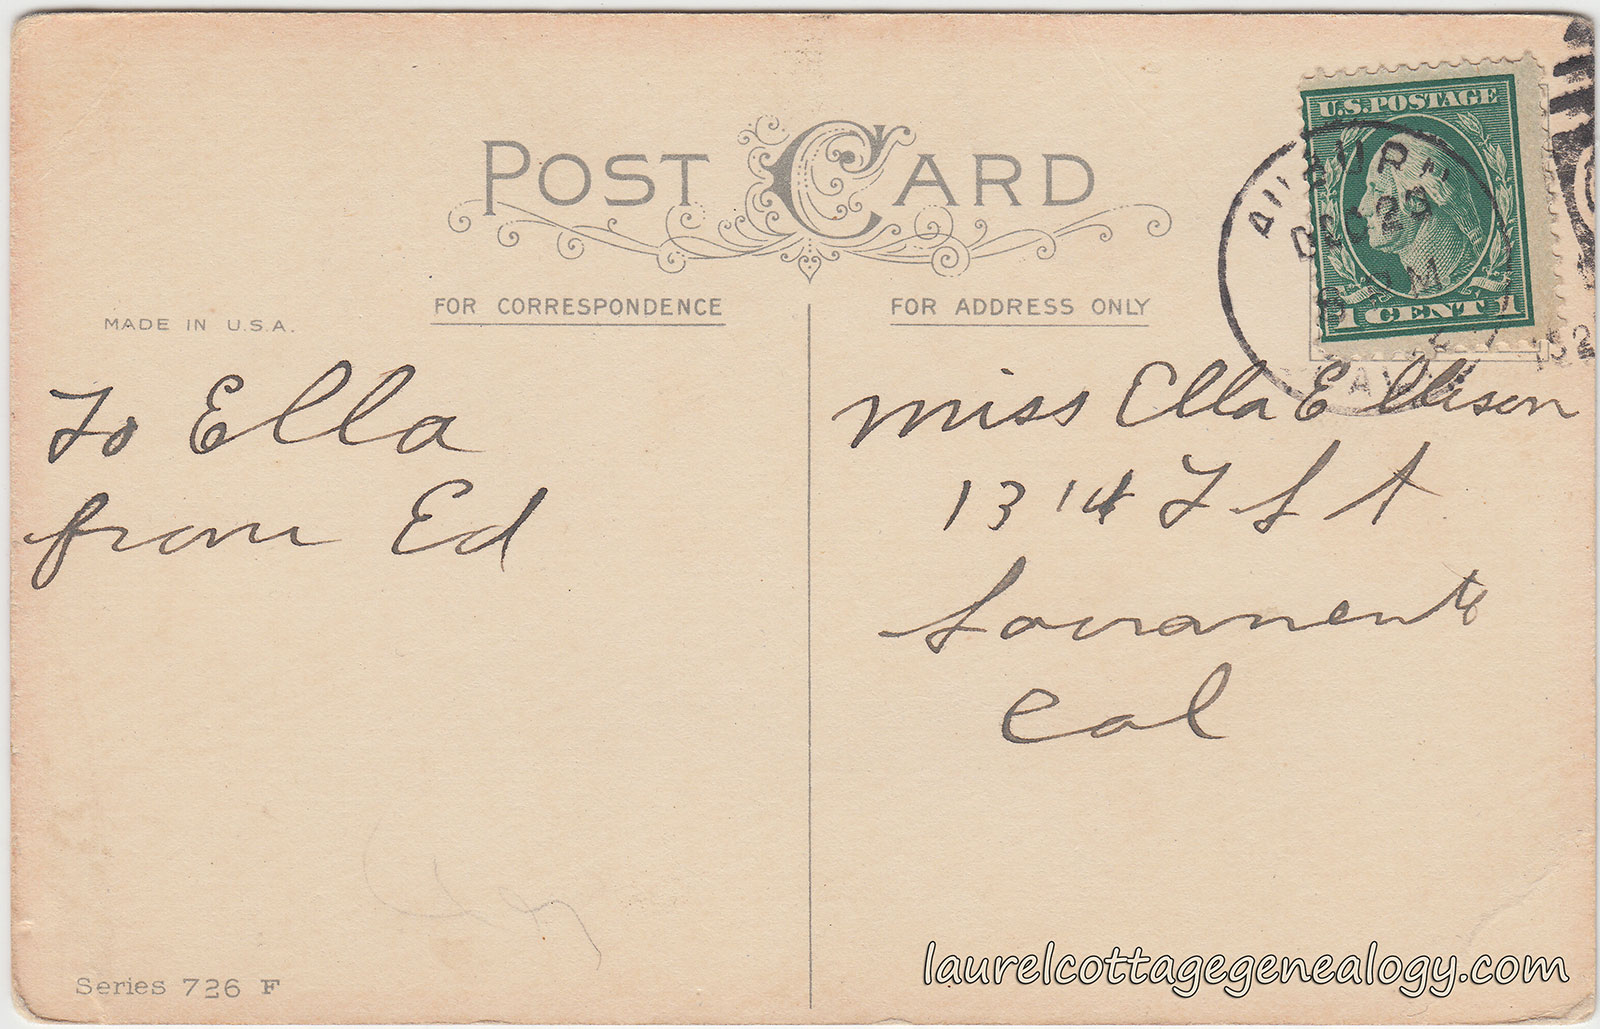 POST CARD
FOR CORRESPONDENCE
FOR ADDRESS ONLY
MADE IN U.S.A.
U.S. POSTAGE
1 CENT 1
DEC 29
To Ella
from Ed
Miss Ella Ellison
1314 F St
Sacramento
Cal
Series 726 F
laurelcottagegenealogy.com